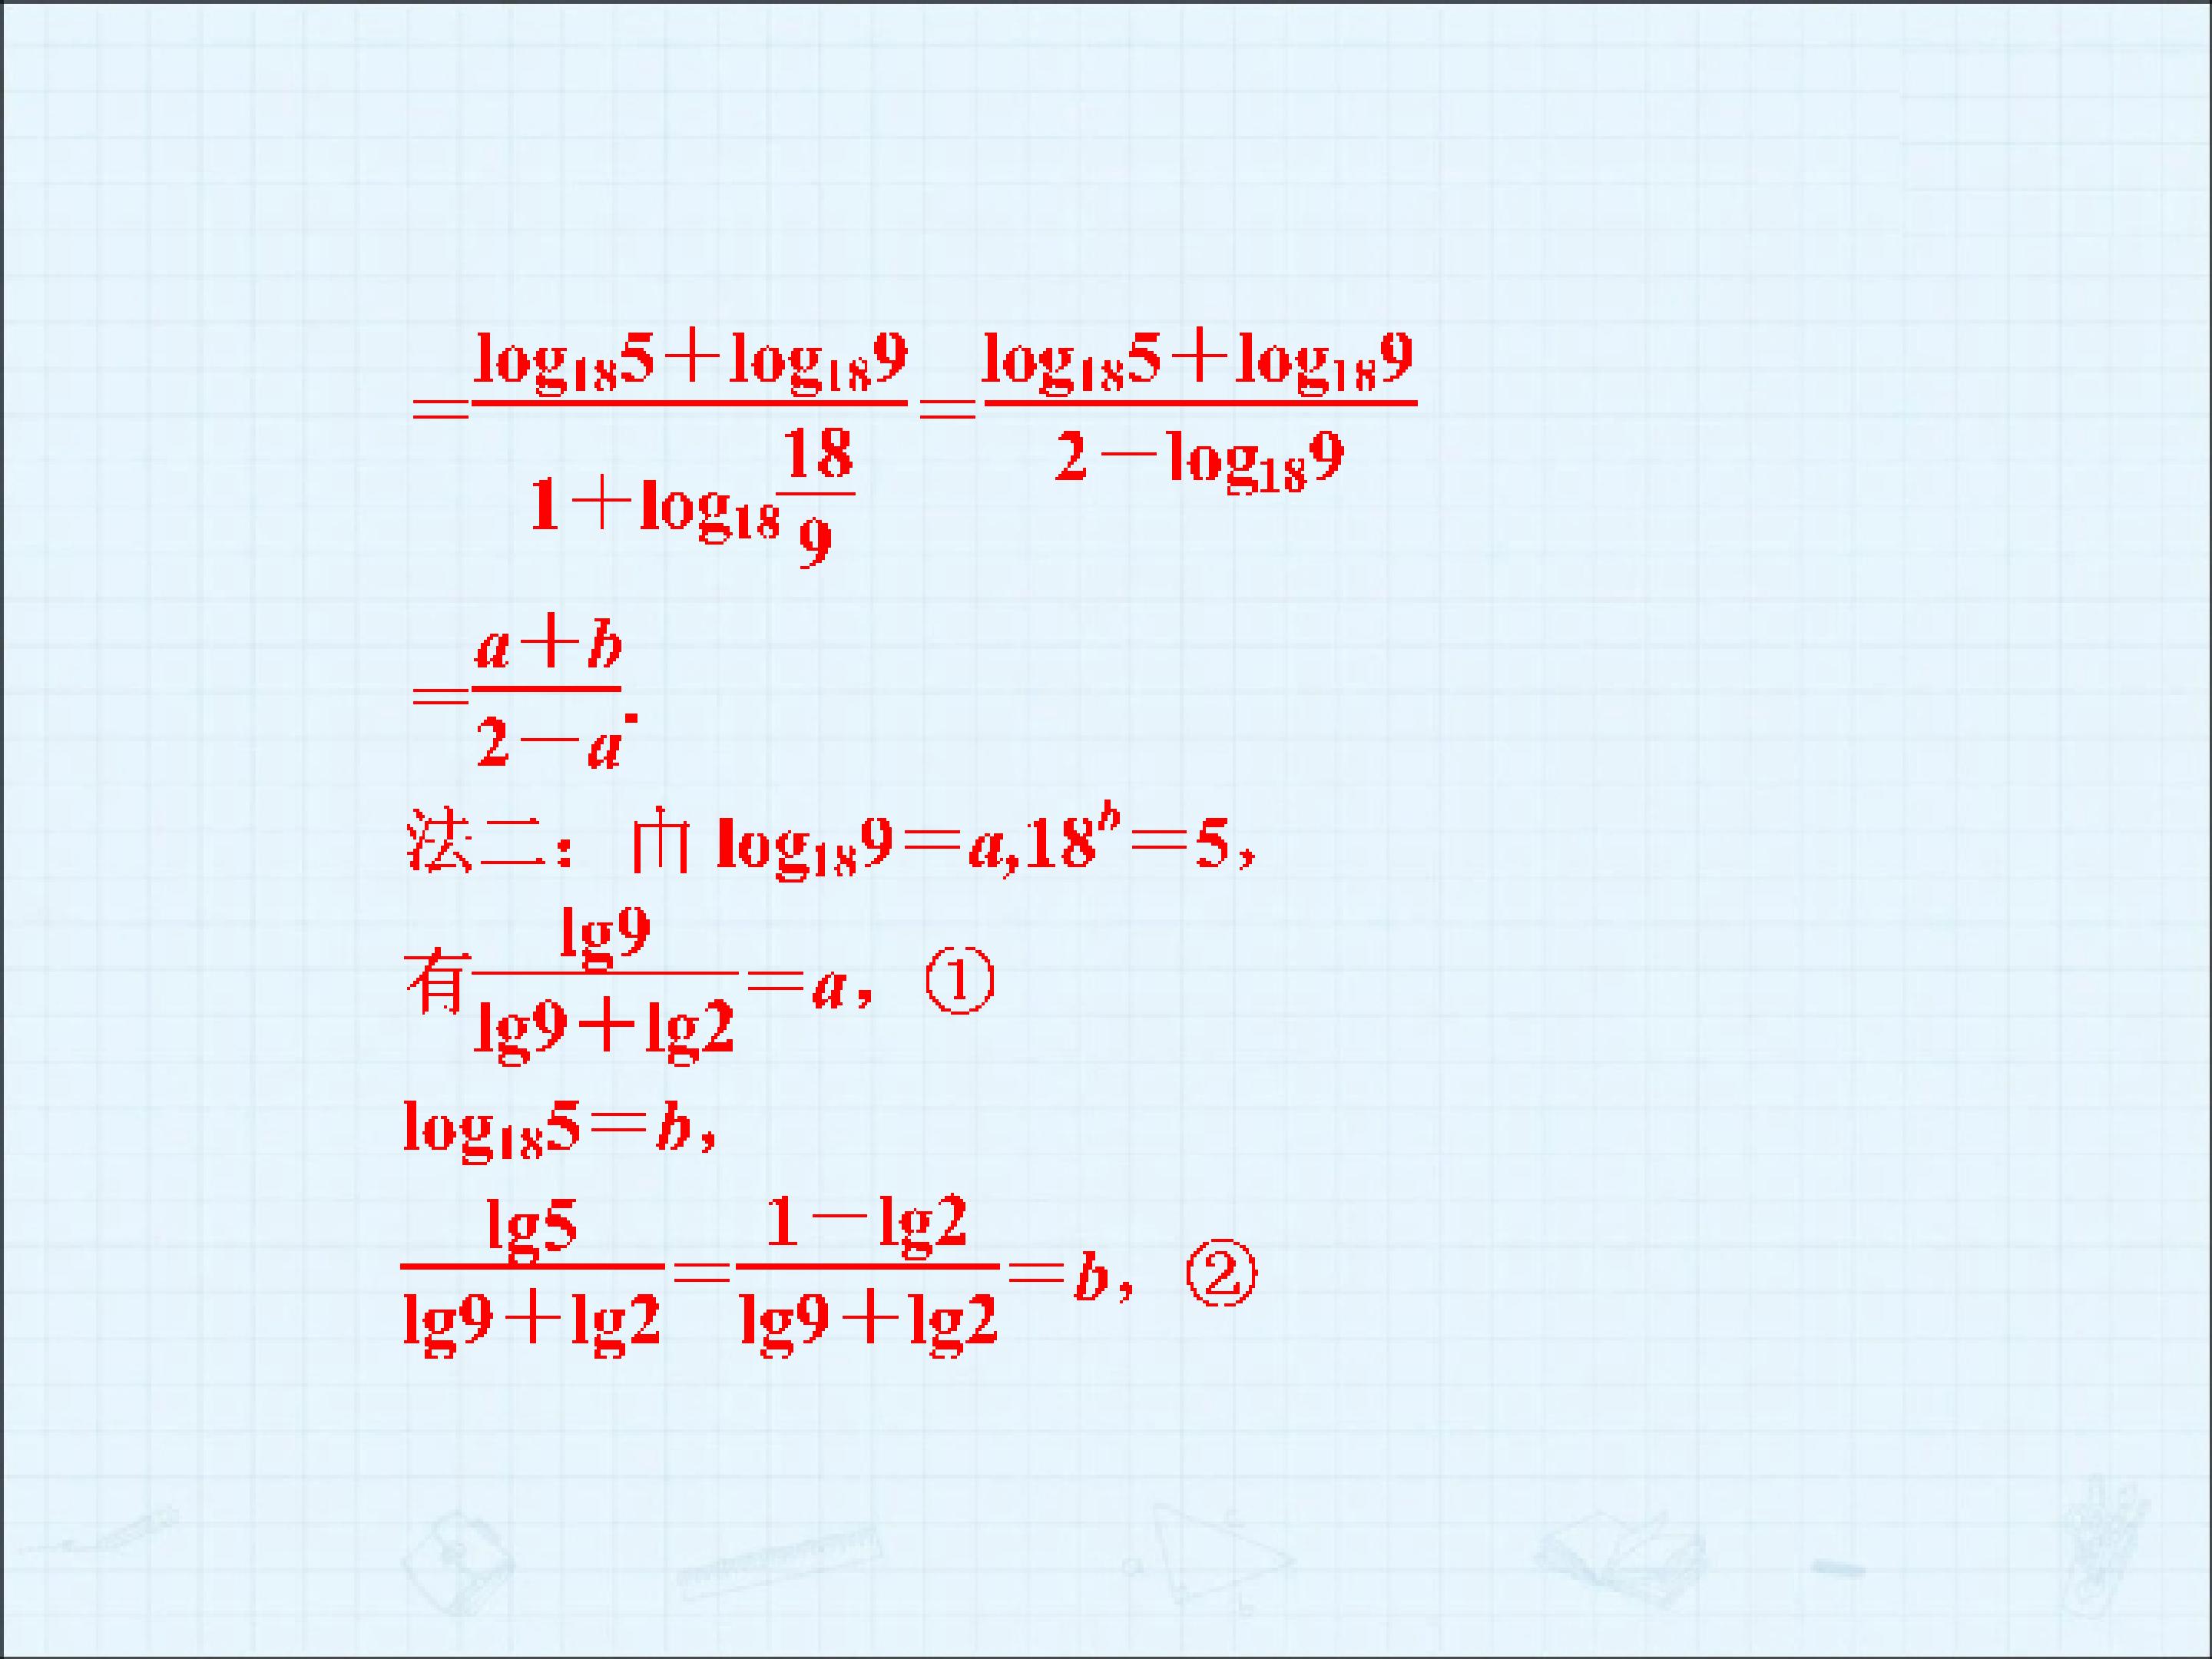 =\frac{log₁₈5+log₁₈9}{1+log₁₈\frac{18}{9}}=\frac{log₁₈5+log₁₈9}{2-log₁₈9}
=\frac{a+b}{2-a}.
法二: log₁₈9=a,18ᵇ=5,
有\frac{lg9}{lg9+lg2}=a, ①
log₁₈5=b,
\frac{lg5}{lg9+lg2}=\frac{1-lg2}{lg9+lg2}=b, ②